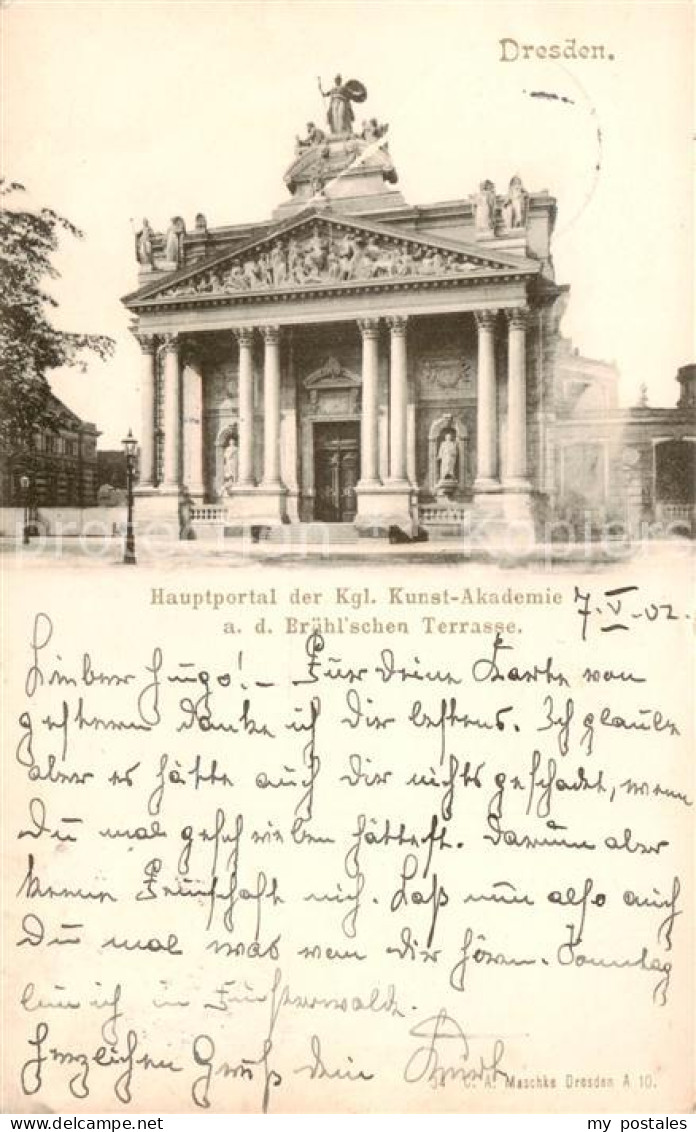 Dresden.
Hauptportal der Kgl. Kunst-Akademie
a. d. Brühl'schen Terrasse.
7.V.02.
Lieber Hugo! – Für Deine Karte von
gestern danke ich Dir bestens. Ich glaube
aber es hätte auch Dir nichts geschadet, wenn
Du mal geschrieben hättest. Darum aber
keine Feindschaft nich. Laß nun also auch
Du mal was von Dir hören. Sonntag
bin ich in Finsterwalde.
Herzlichen Gruß Dein Kurt
34 C. A. Maschke Dresden A 10.
my postales